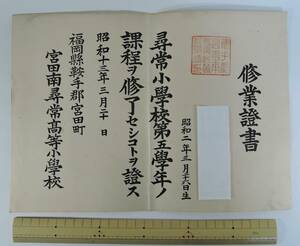 修業證書
昭和二年三月十六日生
尋常小學校第五學年ノ
課程ヲ修了セシコトヲ證ス
昭和十三年三月二十日
福岡縣鞍手郡宮田町
宮田南尋常高等小學校